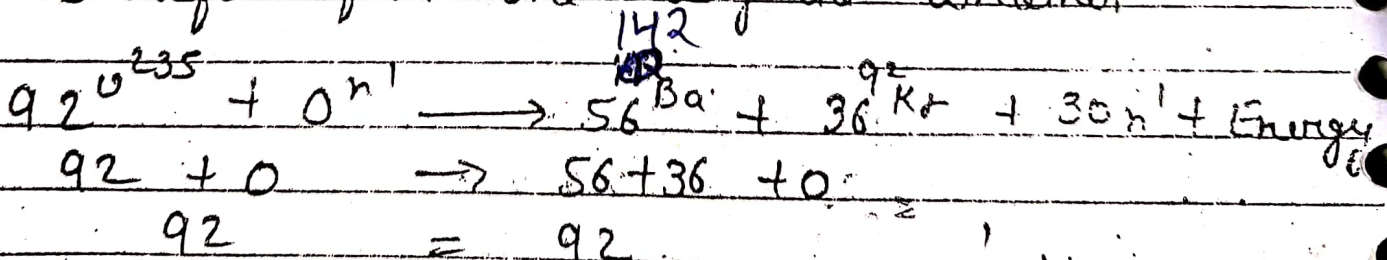 142
92 U 235 + 0 n 1 → 56 Ba + 36 Kr 92 + 3 0 n 1 + Energy
92 + 0 → 56 + 36 + 0
92 = 92